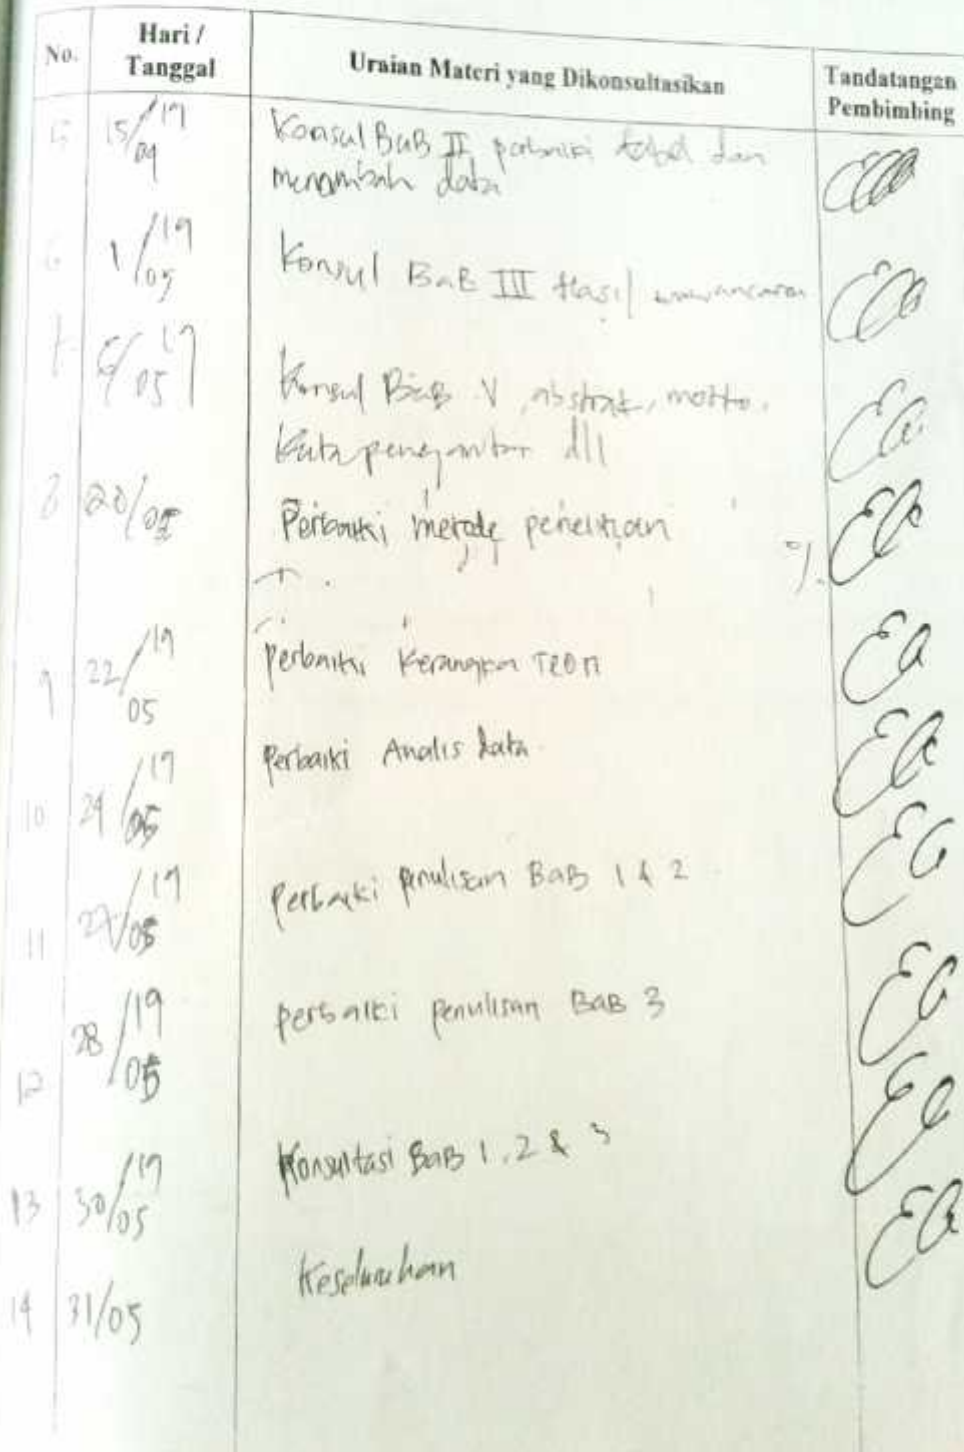 No. Hari / Tanggal Uraian Materi yang Dikonsultasikan Tandatangan Pembimbing
5 15/04 19 Konsul BaB II perbaiki tabel dan
menambah data
6 1/05 19 Konsul BaB III Hasil wawancara
5/05 19 Konsul BaB V, abstrak, motto,
Kata pengantar dll
8 20/05 Perbaiki metode penelitian
9 22/05 19 perbaiki Kerangka Teori
10 24/05 19 Perbaiki Analis data
11 27/05 19 Perbaiki penulisan BaB 1 & 2
12 28/05 19 perbaiki penulisan BaB 3
13 30/05 19 Konsultasi BaB 1, 2 & 3
14 31/05 Keseluruhan